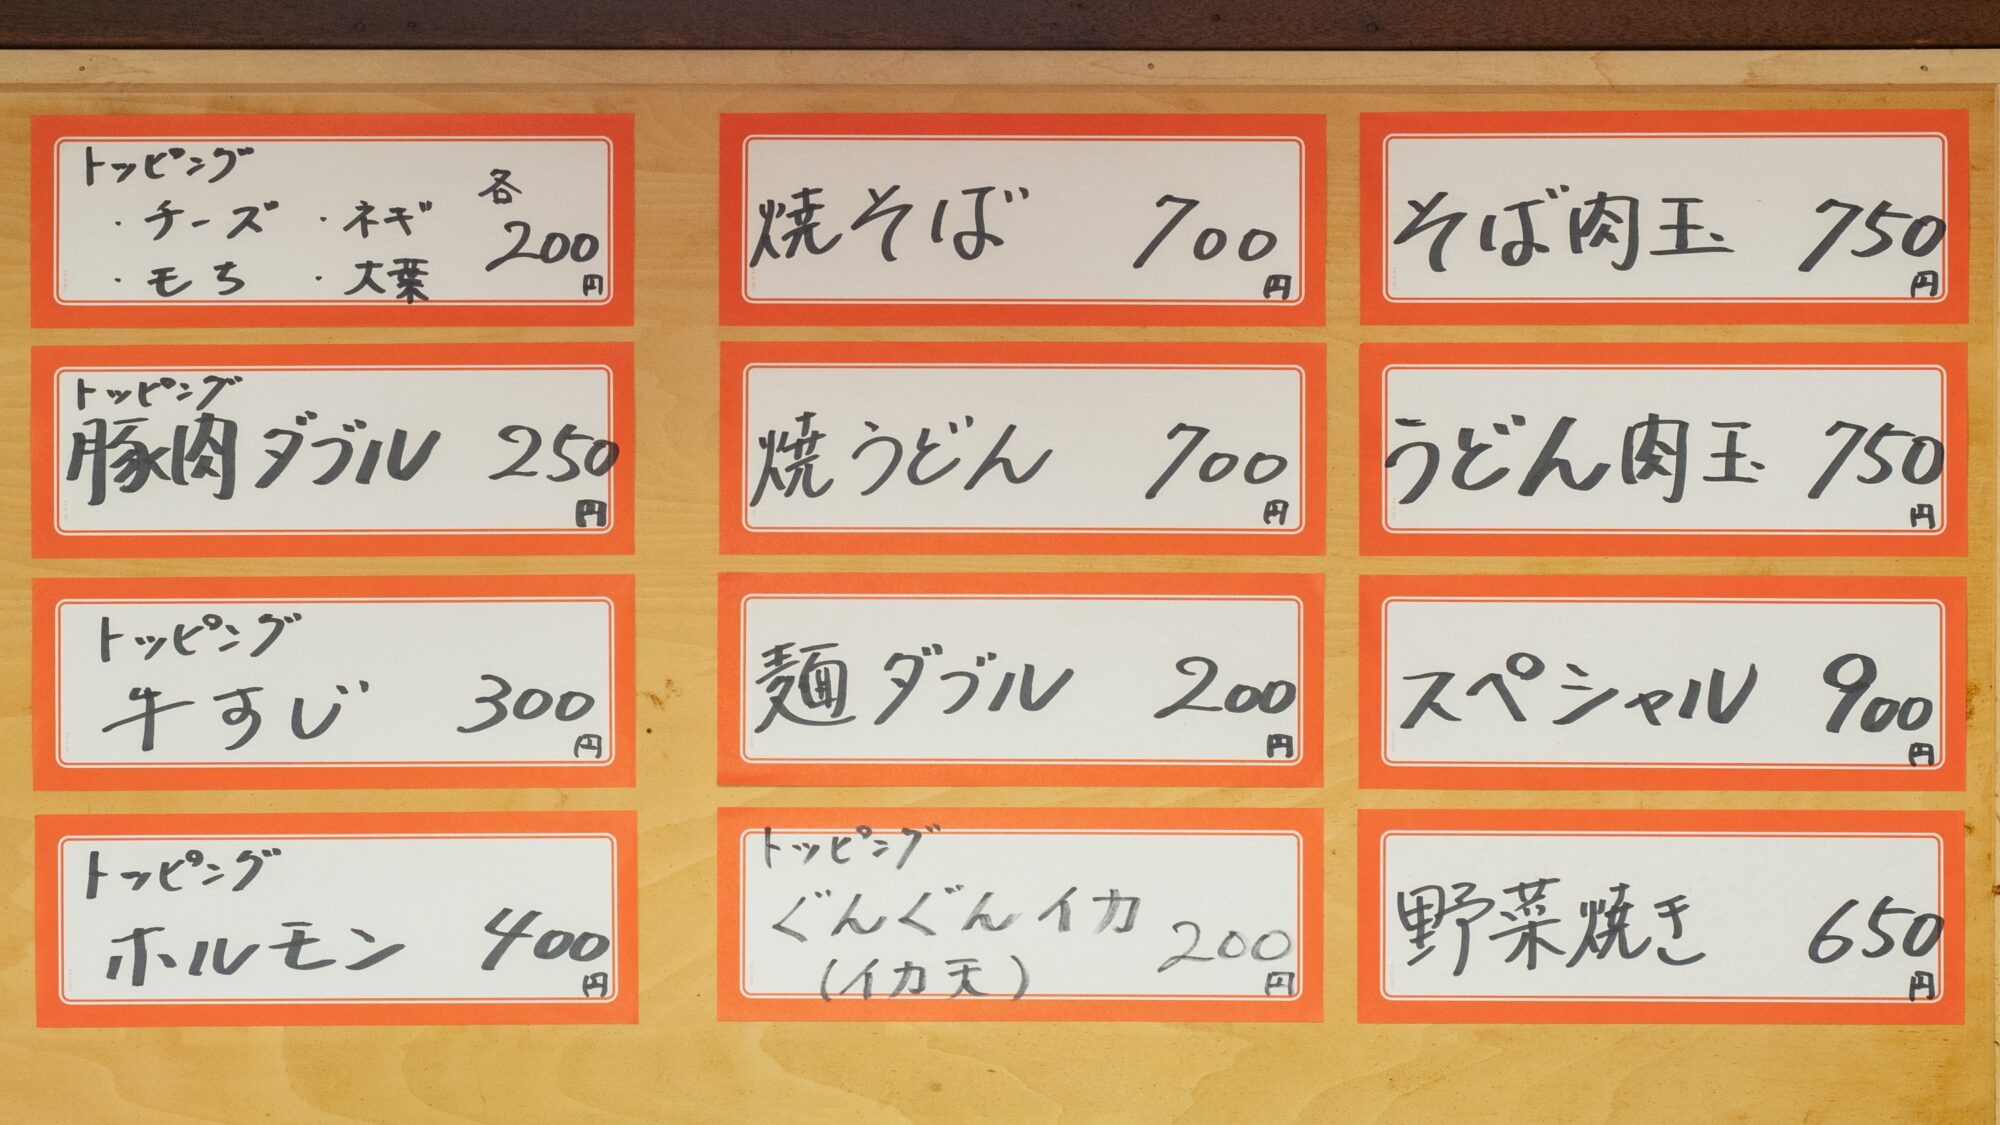 トッピング
・チーズ ・ネギ 各
・もち ・大葉 200円
トッピング
豚肉ダブル 250円
トッピング
牛すじ 300円
トッピング
ホルモン 400円
焼そば 700円
焼うどん 700円
麺ダブル 200円
トッピング
ぐんぐんイカ
(イカ天) 200円
そば肉玉 750円
うどん肉玉 750円
スペシャル 900円
野菜焼き 650円